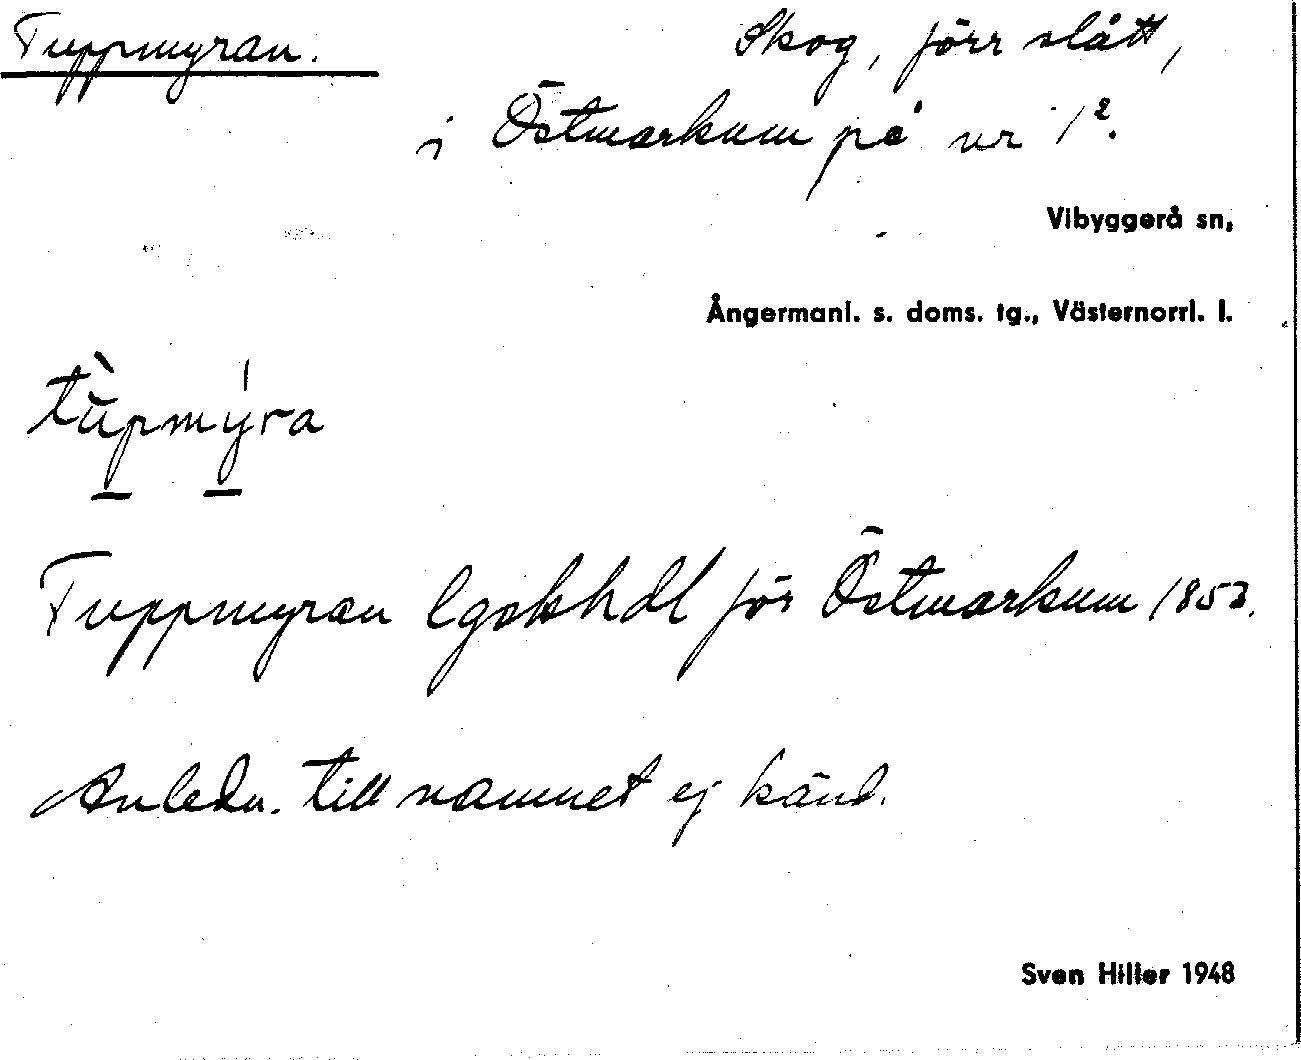 Tuppmyran.
Skog, förr slått,
i Östmarkum på nr 1².
Vibyggerå sn,
Ångermanl. s. doms. tg., Västernorrl. l.
tùpmýra
Tuppmyran lgskhdl för Östmarkum 1853.
Anledn. till namnet ej känd.
Sven Hiller 1948